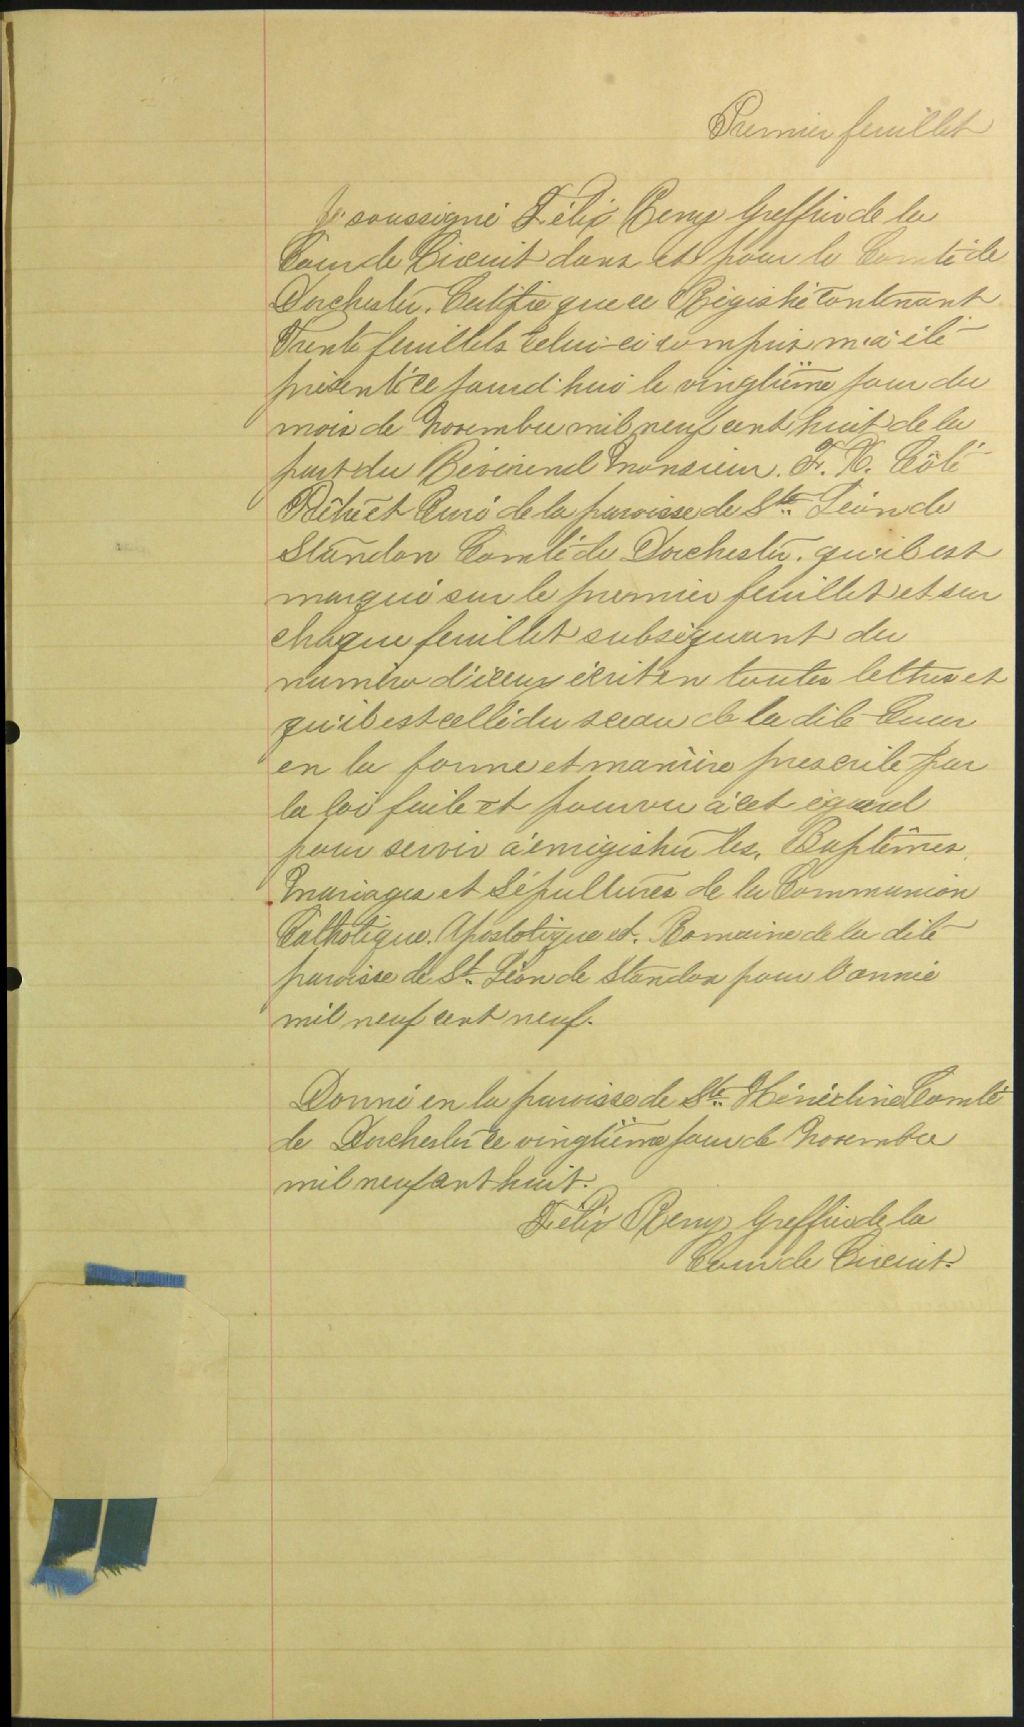 Premier feuillet
Je soussigné Félix Remy Greffier de la
Cour de Circuit dans et pour le Comté de
Dorchester. Certifie que ce Régistre contenant
Trente feuillets celui-ci compris m'a été
présenté ce jourd'hui le vingtième jour du
mois de Novembre mil neuf cent huit de la
part du Révérend Monsieur. F. X. Côté
Prêtre et Curé de la paroisse de Ste. Léon de
Standon Comté de Dorchester. qu'il est
marqué sur le premier feuillet et sur
chaque feuillet subséquant du
numéro d'iceux écrit en toutes lettres et
qu'il est cellé du sceau de la dite Cour
en la forme et manière prescrite par
la loi faite et pourvu à cet égard
pour servir à enrégistrer les, Baptêmes,
Mariages et Sépultures de la Communion
Catholique. Apostolique et. Romaine de la dite
paroisse de St. Léon de Standon pour l'année
mil neuf cent neuf.
Donné en la paroisse de Ste. Hénédine Comté
de Dorchester ce vingtième jour de Novembre
mil neuf cent huit.
Félix Remy Greffier de la
Cour de Circuit.